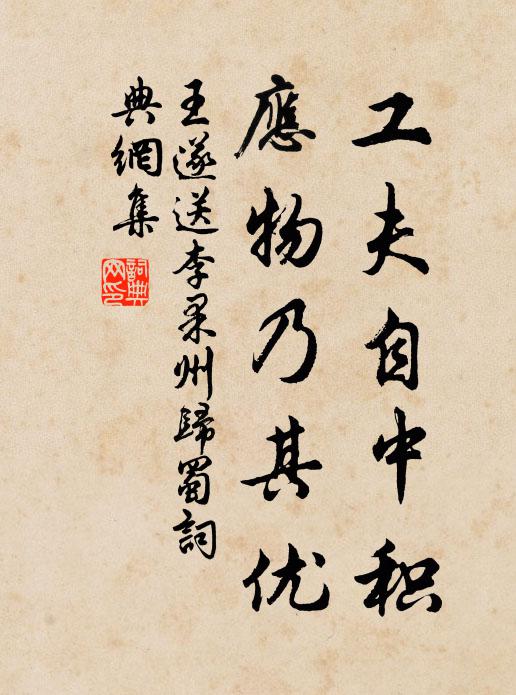 工夫自中积
應物乃其优
王遂送李果州歸蜀詞
典網集
詞典
网印